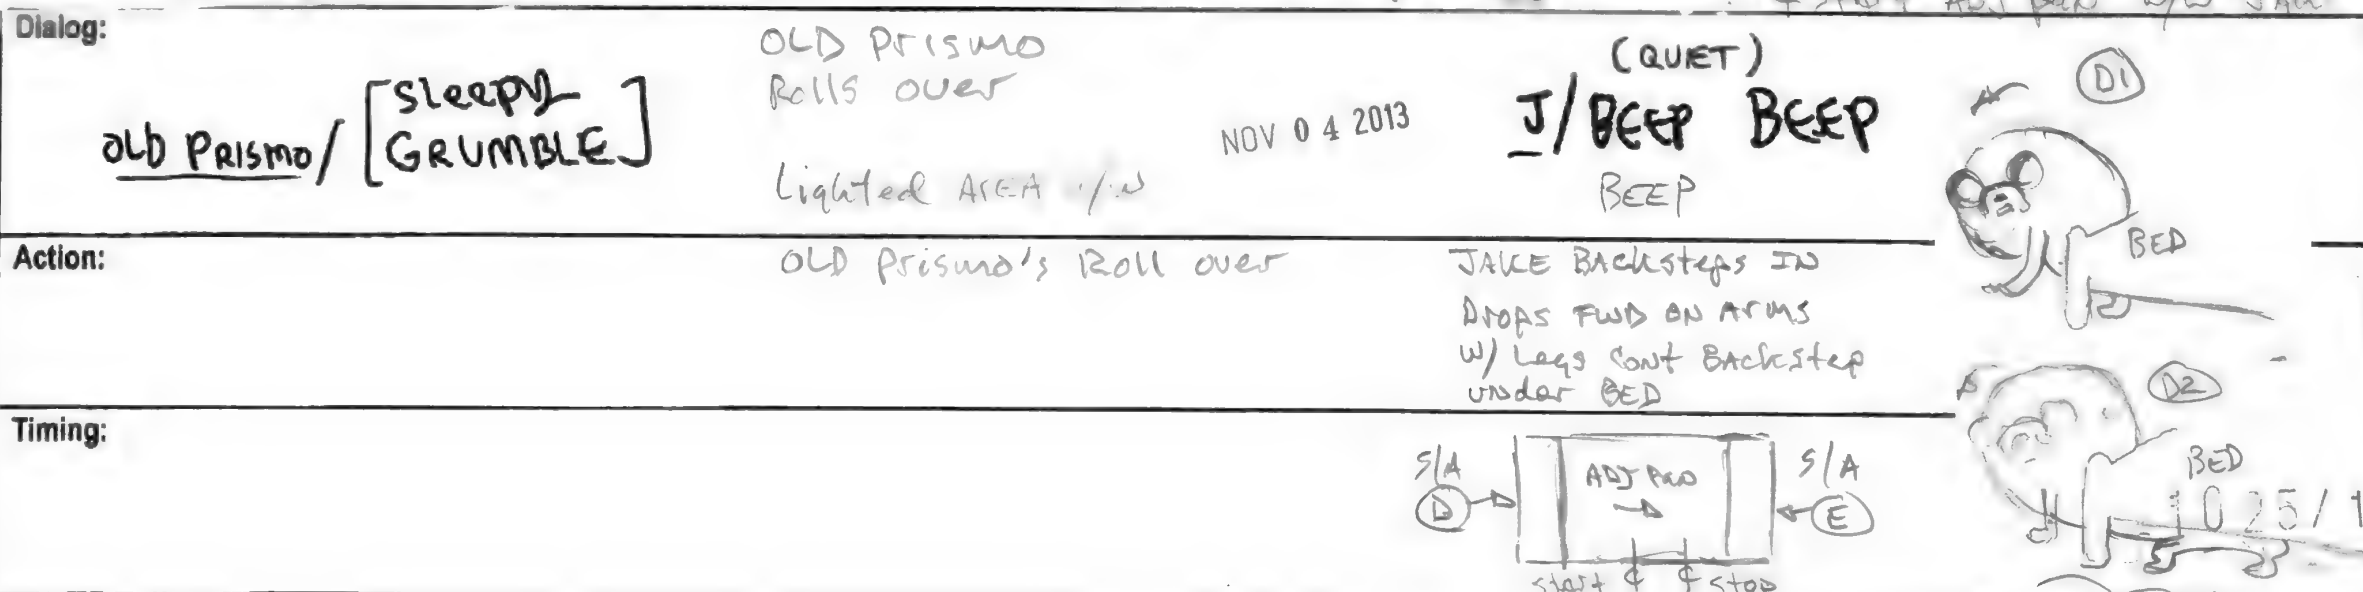 START ADJ
Dialog:
OLD PRISMO/ [SLEEPY
GRUMBLE]
OLD Prismo
Rolls over
Lighted AreA
NOV 04 2013
(QUIET)
J/BEEP BEEP
BEEP
D1
BED
Action:
OLD Prismo's Roll over
JAKE BACKsteps IN
Drops FWD ON Arms
W/ Legs Cont BACkstep
under BED
D2
BED
Timing:
S/A
D
ADJ PAN
S/A
E
start ₵ ₵ stop
1025/1